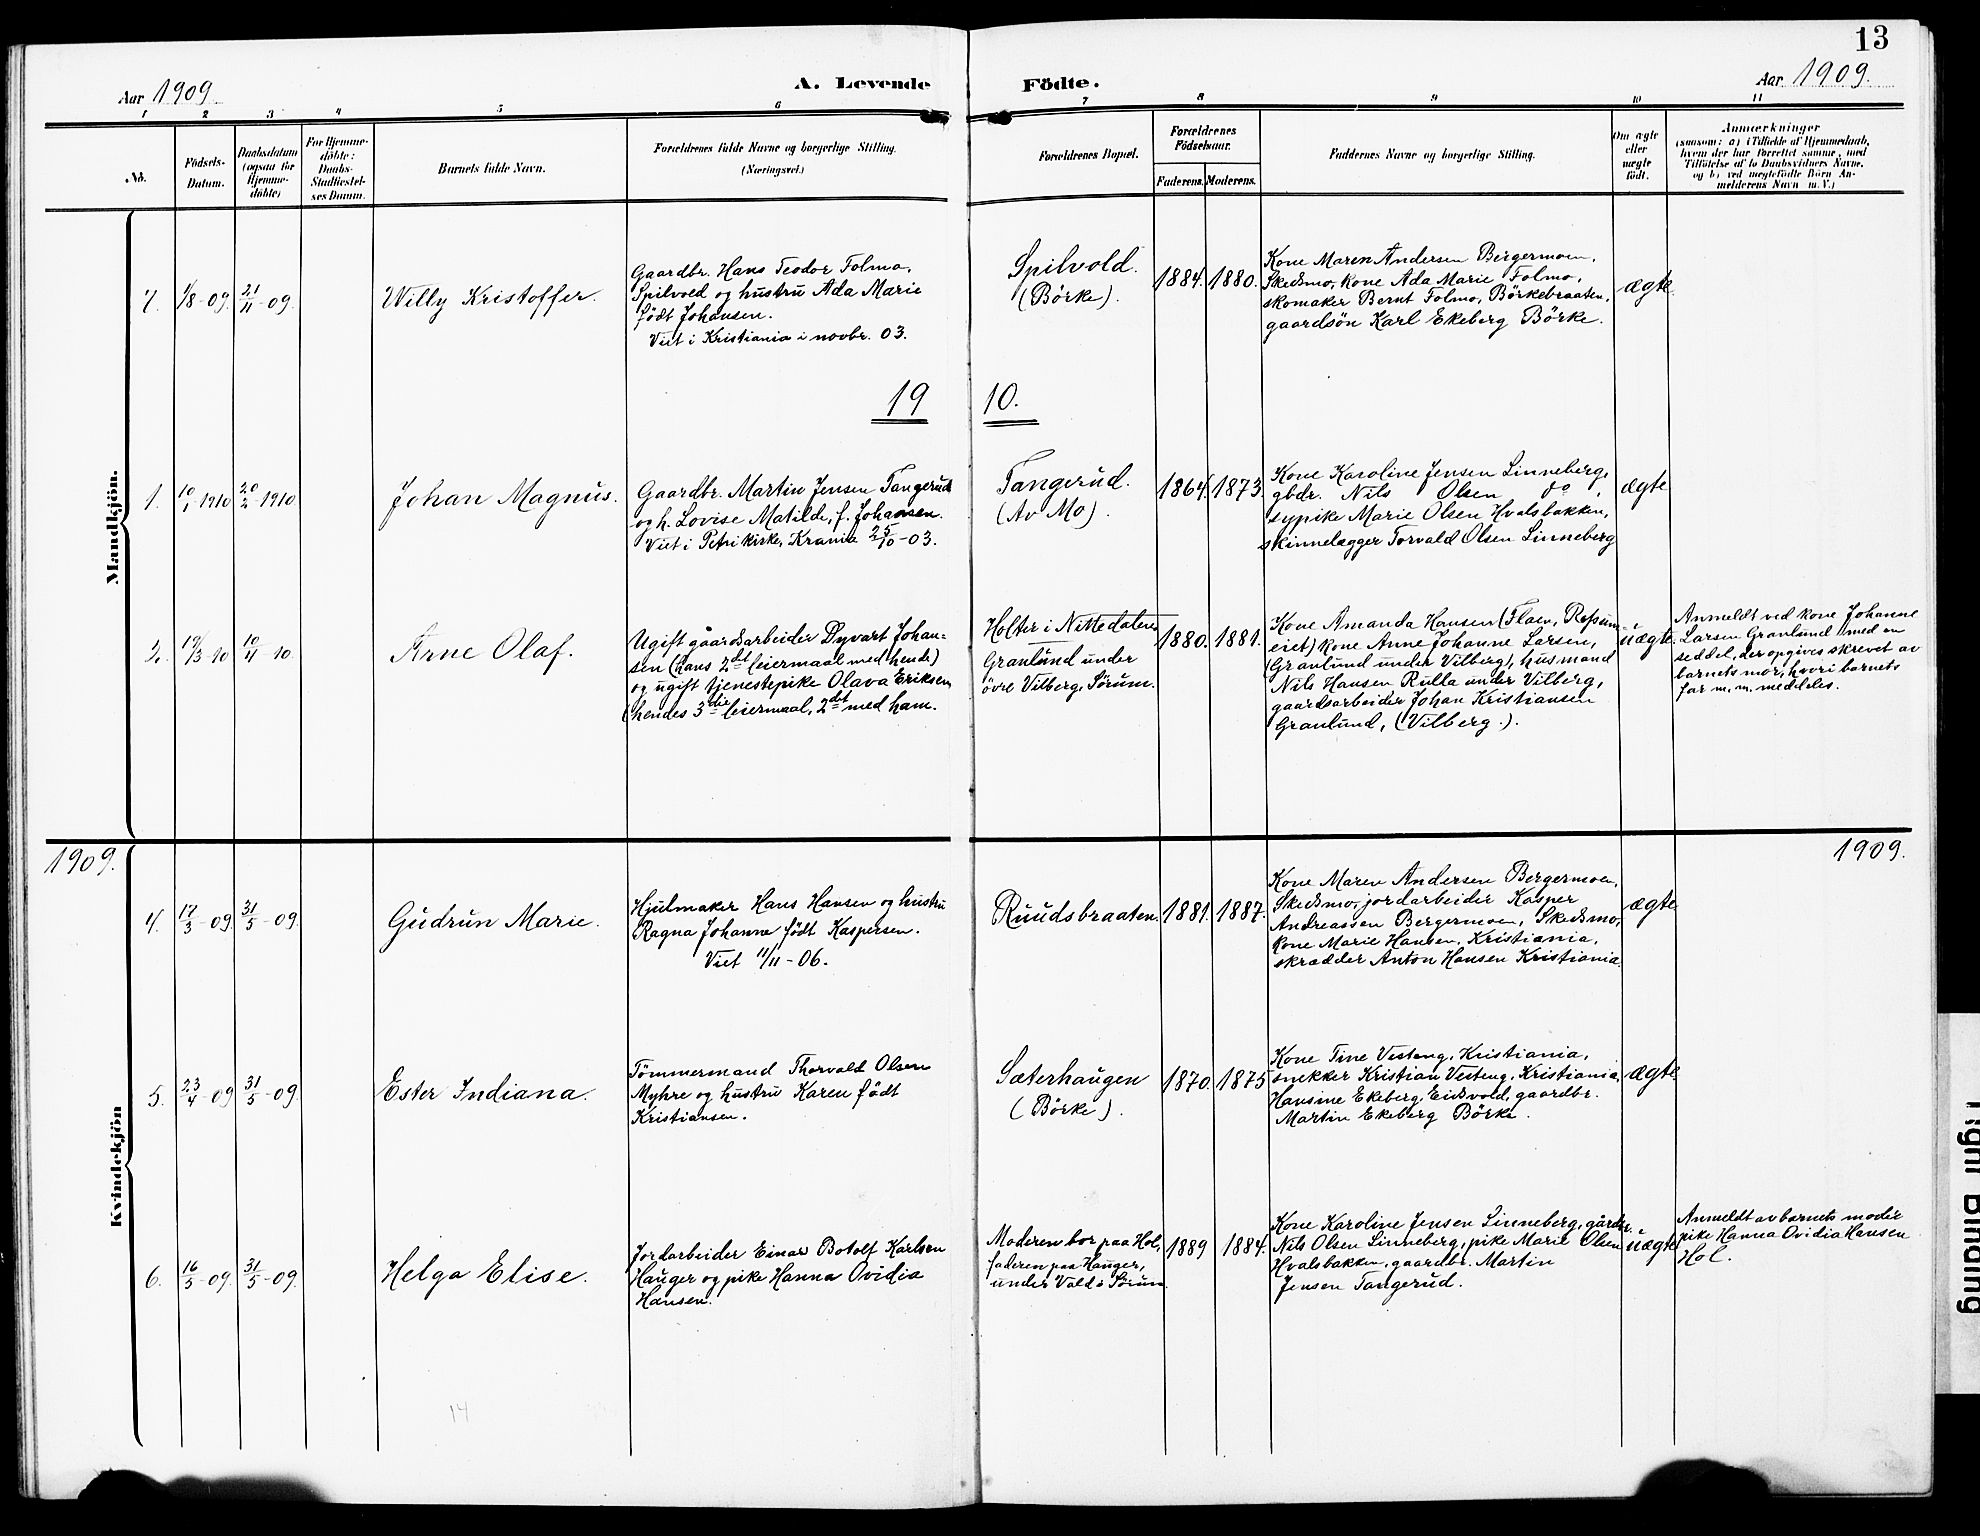 13
Aar 1909. A. Levende Födte. Aar 1909.
1 2 3 4 5 6 7 8 9 10 11
No.
Födsels-
Datum.
Daabsdatum
(ogsaa for
Hjemme-
döbte)
For Hjemme-
döbte:
Daabs-
Stadfæstel-
ses Datum.
Barnets fulde Navn.
Forældrenes fulde Navne og borgerlige Stilling.
(Næringsvei.)
Forældrenes Bopæl.
Forældrenes
Födselsaar.
Faderens. Moderens.
Faddernes Navne og borgerlige Stilling.
Om ægte
eller
uægte
født.
Anmærkninger
(saasom: a) i Tilfælde af Hjemmedaab,
hvem der har forrettet samme, med
Tilföielse af to Daabsvidners Navne,
og b) ved uægtefödte Börn An-
melderens Navn m. V.)
Mandkjön.
7. 1/8-09. 21/11-09. Willy Kristoffer.
Gaardbr. Hans Teodor Folmo,
Spilvold og hustru Ada Marie
född Johansen.
Viet i Kristiania i novbr. 03.
Spilvold.
(Börke).
1884. 1880.
Kone Maren Andersen Bergermoen,
Skedsmo, kone Ada Marie Folmo,
skomaker Bernt Folmo, Börkebraaten,
gaardsön Karl Ekeberg Börke.
ægte
19 10.
1. 10/1-1910 20/2-1910. Johan Magnus.
Gaardbr. Martin Jensen Tangerud
og h. Lovise Matilde, f. Johansen.
Viet i Petri kirke, Krania 25/10-03.
Tangerud.
(Av Mo).
1864. 1873.
Kone Karoline Jensen Linneberg,
gbdr. Nils Olsen do,
sypike Marie Olsen Hvalsbakken,
skinnelægger Torvald Olsen Linneberg
ægte
2. 19/3-10 10/4-10. Arne Olaf.
Ugift gaardsarbeider Dyvart Johan-
sen (hans 2det leiermaal med hende)
og ugift tjenestepike Olava Eriksen
(hendes 3die leiermaal, 2det med ham.
Holter i Nittedalen
Granlund under
övre Vilberg, Sörum.
1880. 1881.
Kone Amanda Hansen (Flaen, Refsum-
eiet) kone Anne Johanne Larsen,
(Granlund under Vilberg), husmand
Nils Hansen Rulla under Vilberg,
gaardsarbeider Johan Kristiansen
Granlund, (Vilberg.).
uægte
Anmeldt ved kone Johanne
Larsen Granlund med en
seddel, der opgives skrevet av
barnets mor, hvori barnets
far m. m. meddeles.
1909. 1909.
Kvindekjön
4. 17/3-09. 31/5-09. Gudrun Marie.
Hjulmaker Hans Hansen og hustru
Ragna Johanne födt Kaspersen.
Viet 11/11-06.
Ruudsbraaten.
1881. 1887.
Kone Maren Andersen Bergermoen,
Skedsmo, jordarbeider Kasper
Andreassen Bergermoen, Skedsmo,
kone Marie Hansen, Kristiania,
skrædder Anton Hansen Kristiania.
ægte
5. 23/4-09 31/5-09. Ester Indiana.
Tömmermand Thorvald Olsen
Myhre og hustru Karen födt
Kristiansen.
Sæterhaugen
(Börke).
1870. 1875
Kone Tine Vesteng, Kristiania,
snekker Kristian Vesteng, Kristiania,
Hansine Ekeberg, Eidsvold, gaardbr.
Martin Ekeberg Börke.
ægte
6. 16/5-09. 31/5-09. Helga Elise.
Jordarbeider Einar Botolf Karlsen
Hauger og pike Hanna Ovidia
Hansen.
Moderen bor paa Hol,
faderen paa Hauger,
under Vald i Sörum.
1889 1884.
Kone Karoline Jensen Linneberg, gårdbr.
Nils Olsen Linneberg, pike Marie Olsen
Hvalsbakken, gaardbr. Martin
Jensen Tangerud.
uægte
Anmeldt av barnets moder
pike Hanna Ovidia Hansen
Hol.
14
Tight Binding